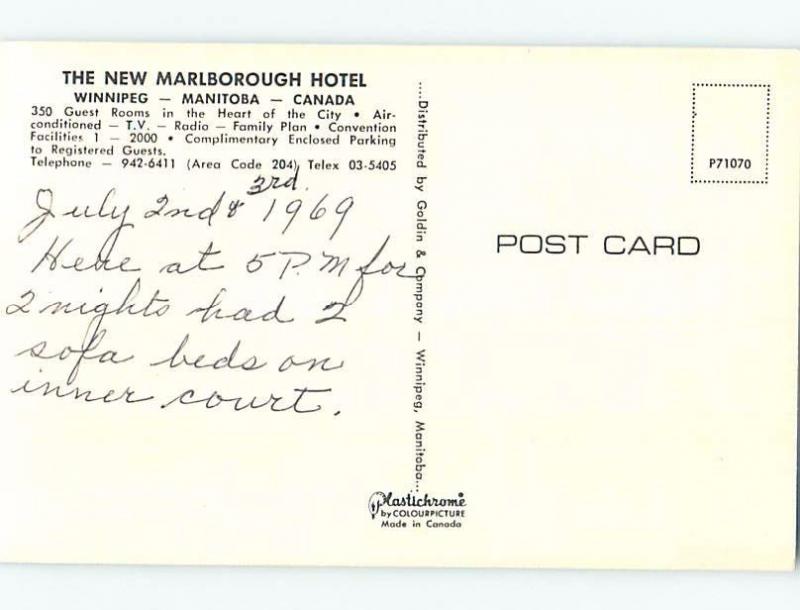 THE NEW MARLBOROUGH HOTEL
WINNIPEG — MANITOBA — CANADA
350 Guest Rooms in the Heart of the City • Air-
conditioned — T.V. — Radio — Family Plan • Convention
Facilities 1 — 2000 • Complimentary Enclosed Parking
to Registered Guests.
Telephone — 942-6411 (Area Code 204) Telex 03-5405
3rd.
July 2nd & 1969
Here at 5 P.M for
2 nights had 2
sofa beds on
inner court.
....Distributed by Goldin & Company — Winnipeg, Manitoba...
Plastichrome
by COLOURPICTURE
Made in Canada
P71070
POST CARD